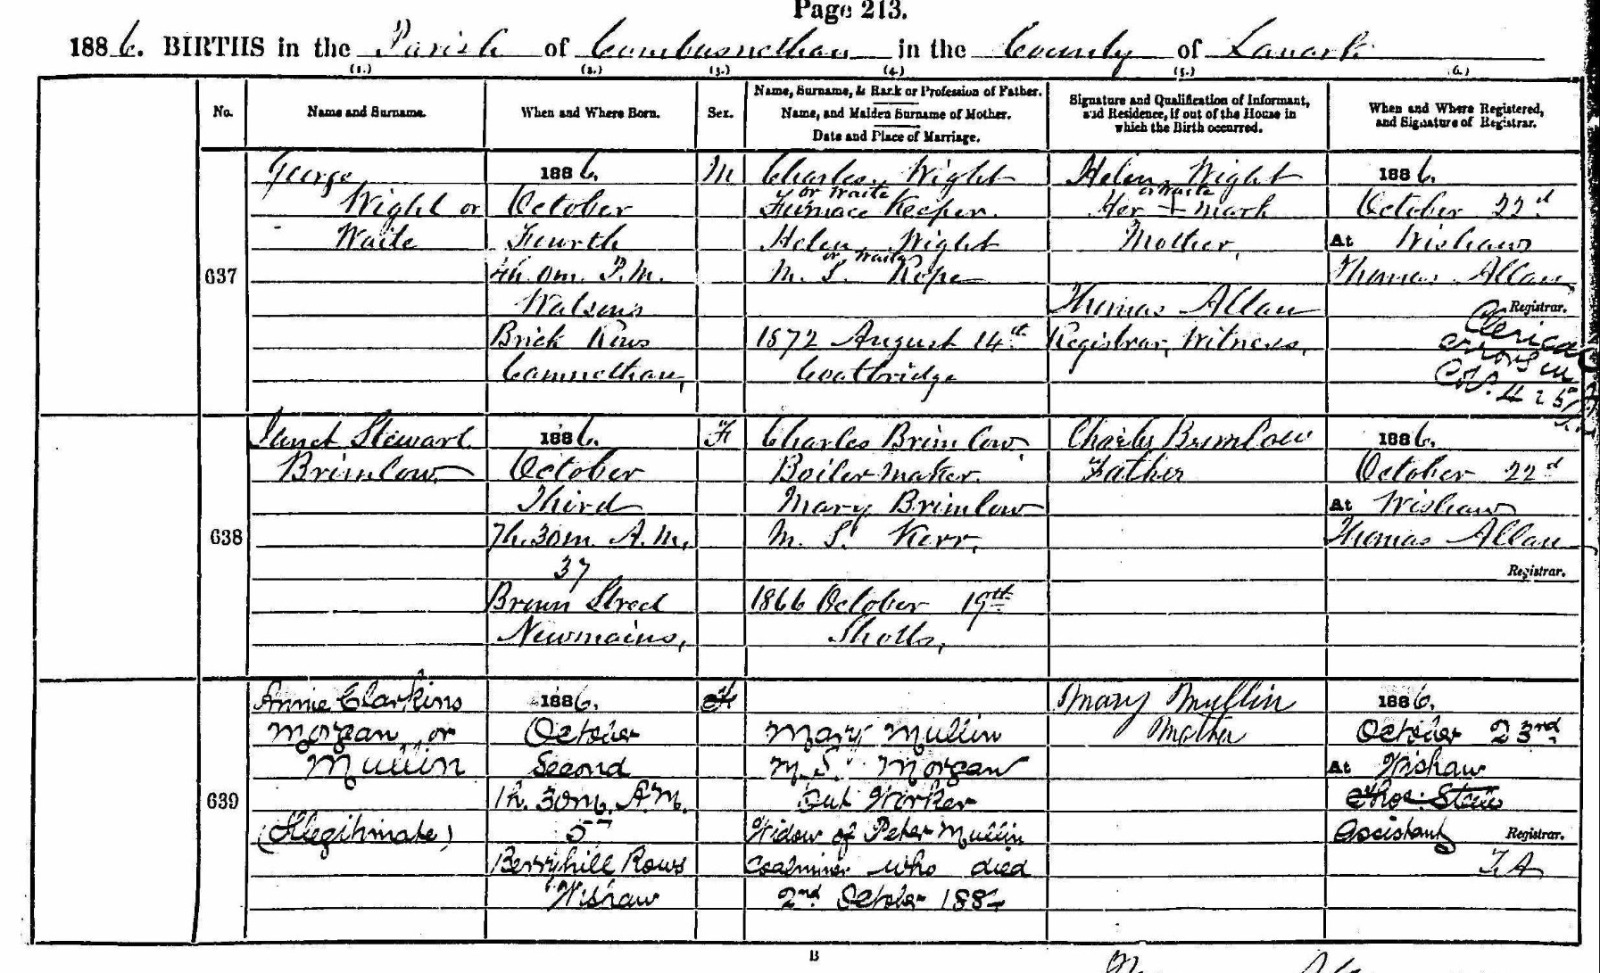 Page 213.
1886. BIRTHS in the Parish of Cambusnethan in the County of Lanark
(1.) (2.) (3.) (4.) (5.) (6.)
No.
Name and Surname.
When and Where Born.
Sex.
Name, Surname, & Rank or Profession of Father.
Name, and Maiden Surname of Mother.
Date and Place of Marriage.
Signature and Qualification of Informant,
and Residence, if out of the House in
which the Birth occurred.
When and Where Registered,
and Signature of Registrar.
637
George
Wight or
Waite
1886.
October
Fourth
4h. 0m. P.M.
Watson's
Brick Rows
Camnethan,
M
Charles Wight
or Waite
Furnace Keeper.
Helen Wight
or Waite
M. S. Rope
1872 August 14th
Coatbridge
Helen Wight
or Waite
Her + mark
Mother,
Thomas Allan
Registrar, Witness,
1886.
October 22d
At Wishaw
Thomas Allan
Registrar.
Clerical
errors in
Cols. 4 & 5
638
Janet Stewart
Brimlow
1886.
October
Third
7h. 30m. A.M.
37
Brown Street
Newmains,
F
Charles Brimlow
Boiler maker.
Mary Brimlow
M. S. Kerr,
1866 October 19th
Shotts,
Charles Brimlow
Father
1886.
October 22d
At Wishaw
Thomas Allan
Registrar.
639
Annie Clarkins
Morgan or
Mullin
(Illegitimate)
1886.
October
Second
1h. 30m. A.M.
5
Berryhill Rows
Wishaw
F
Mary Mullin
M.S. Morgan
Out Worker
Widow of Peter Mullin
Coalminer who died
2nd October 1884
Mary Mullin
Mother
1886.
October 23rd
At Wishaw
Assistant Registrar.
T.A.
B